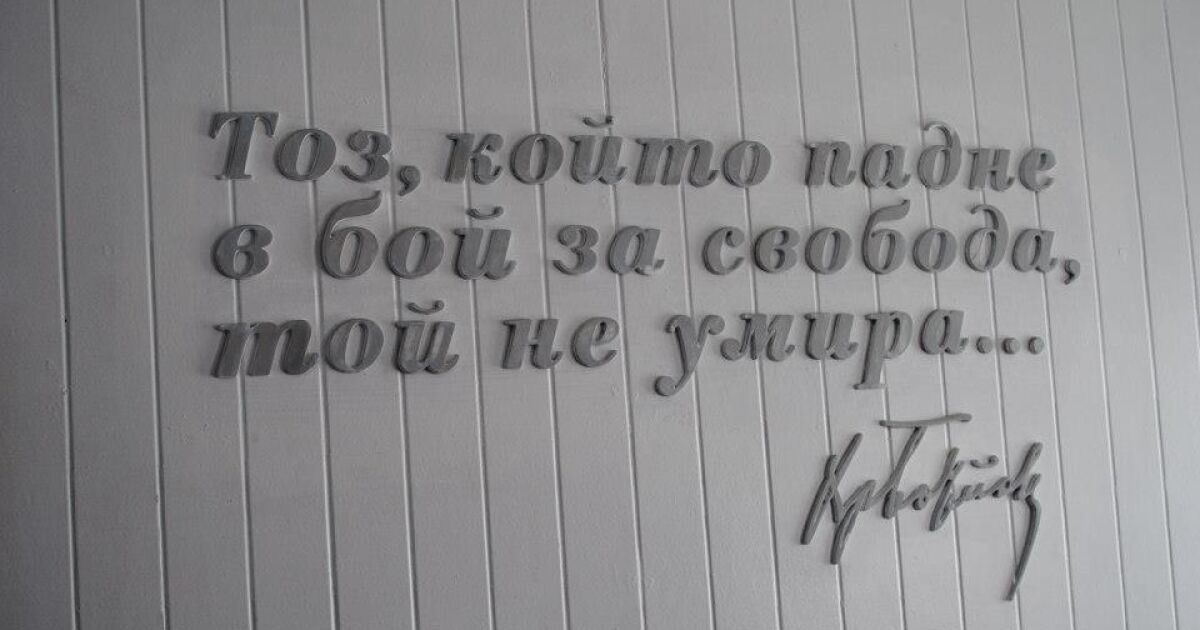 Тоз, който падне
в бой за свобода,
той не умира...